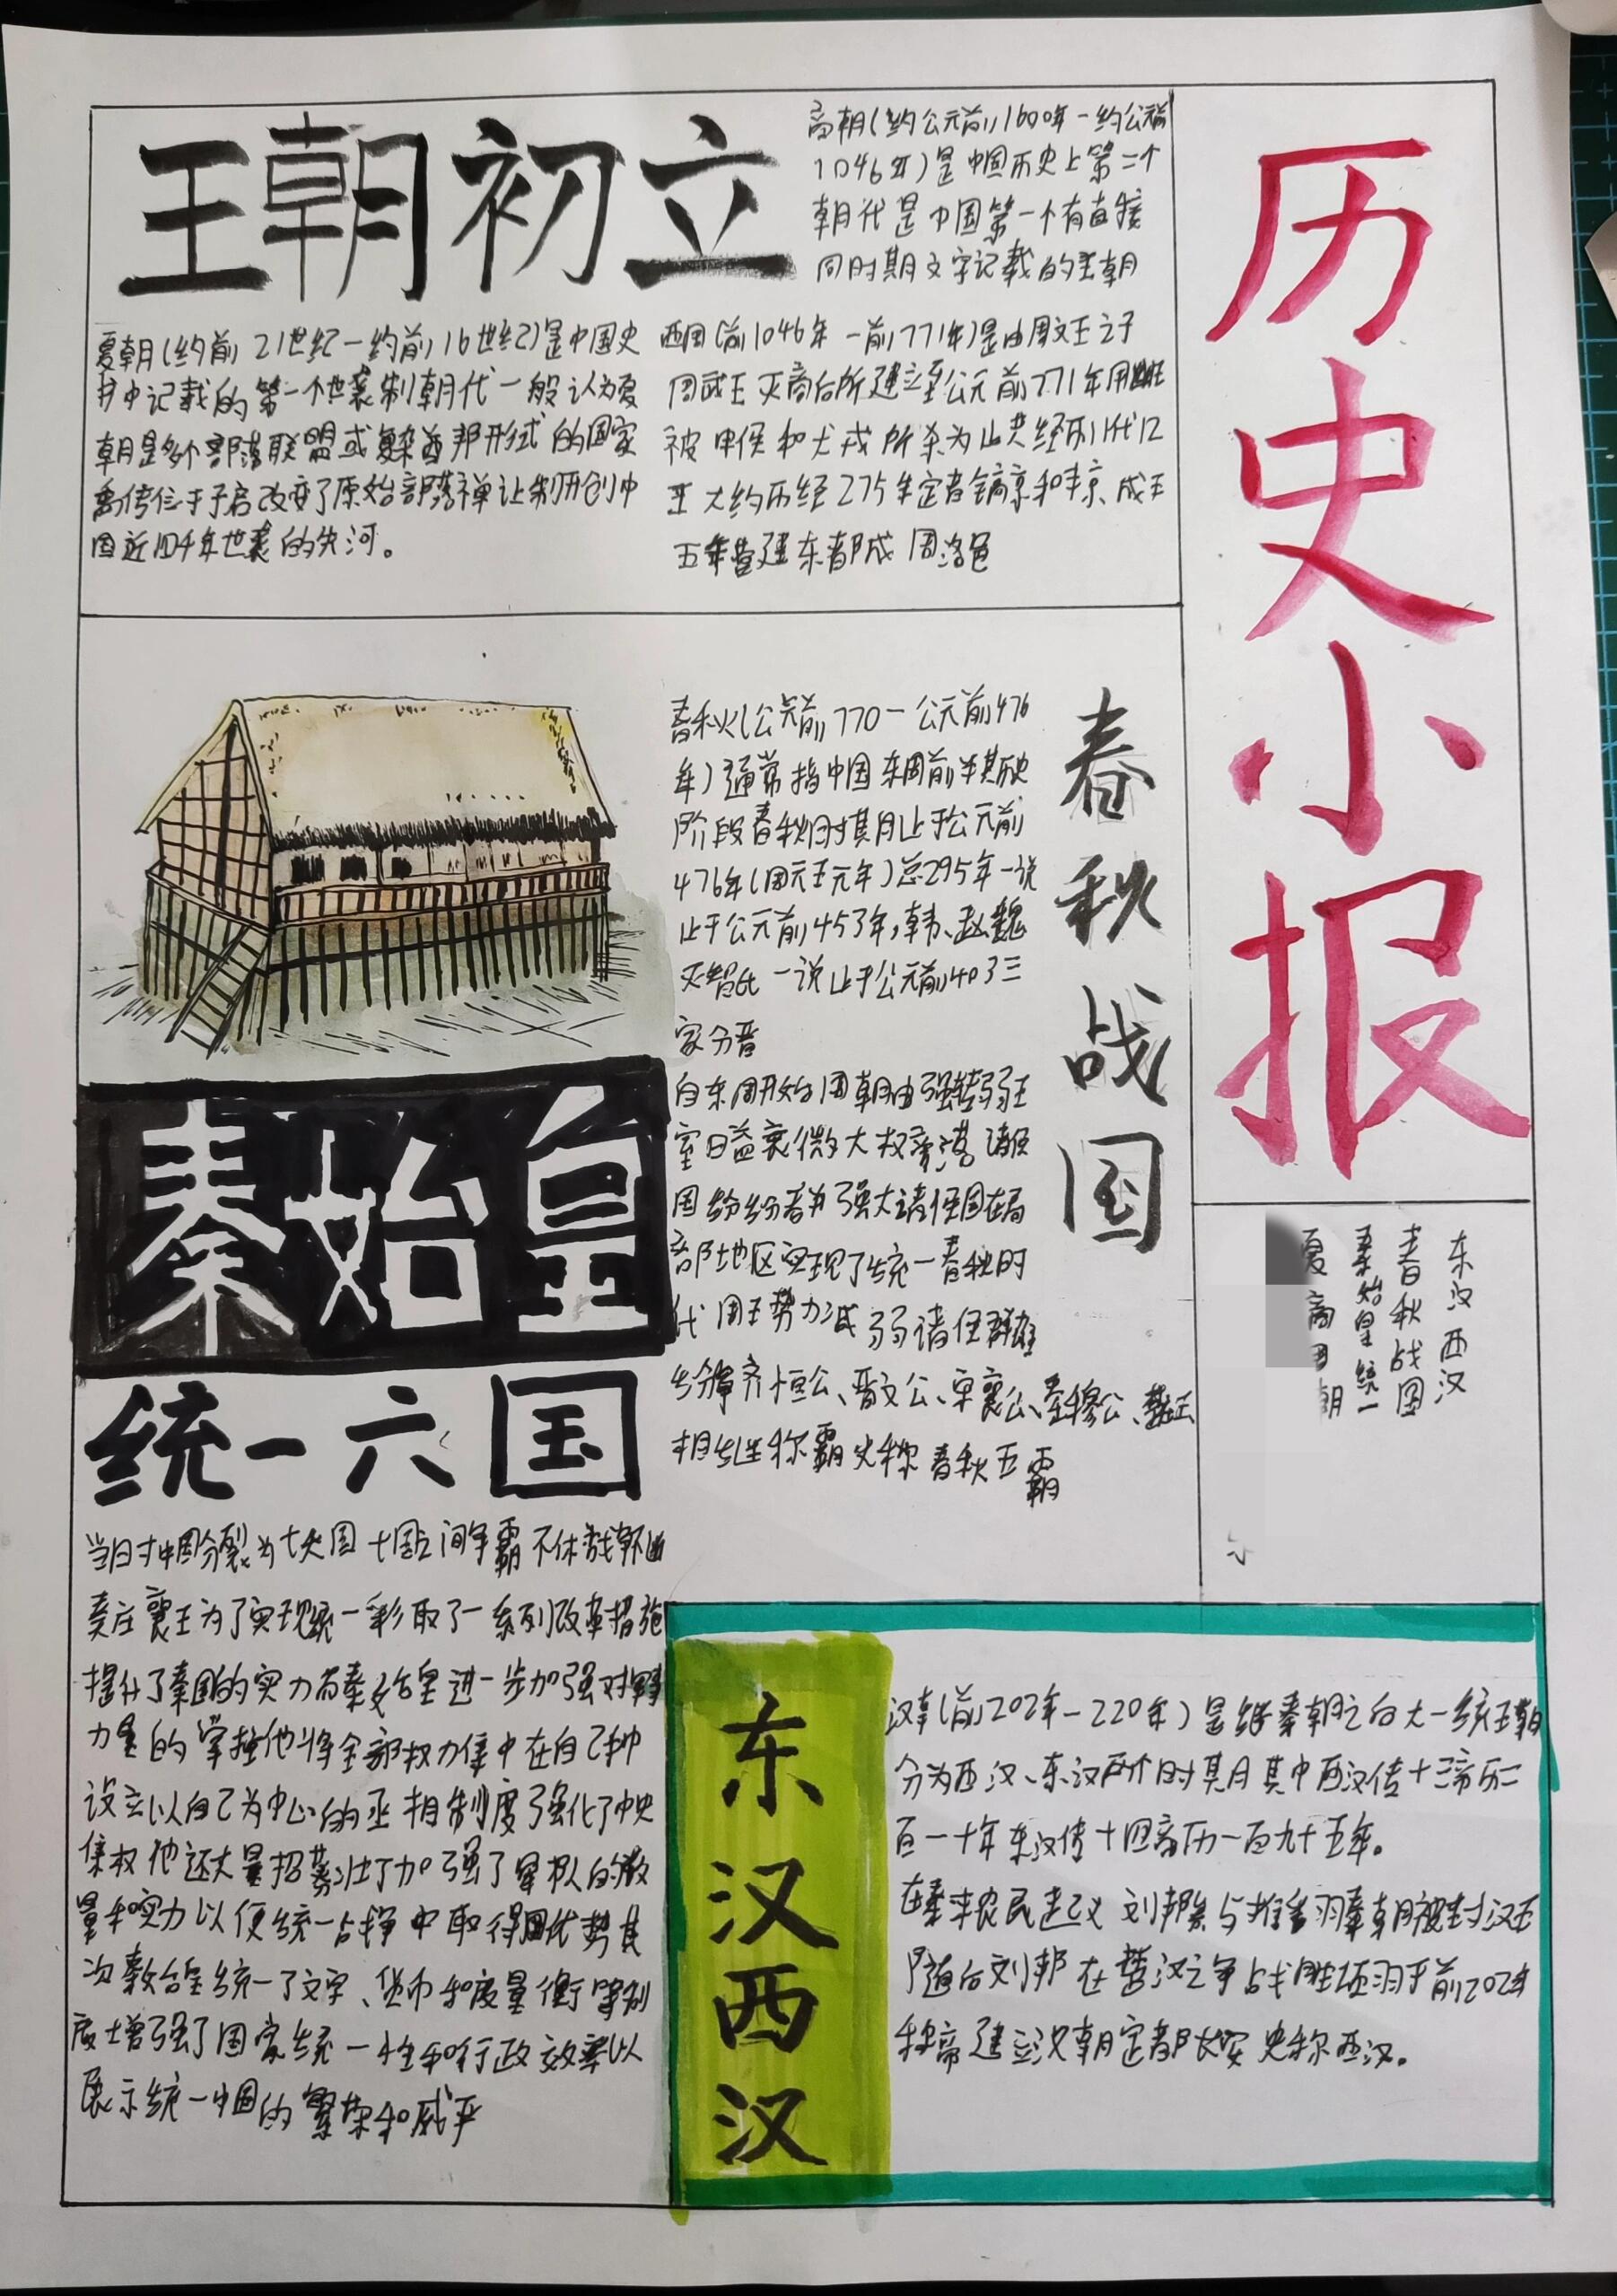 历史小报
王朝初立
商朝(约公元前1600年一约公元前
1046年)是中国历史上第二个
朝代是中国第一个有直接
同时期文字记载的王朝
夏朝(约前21世纪一约前16世纪)是中国史
书中记载的第一个世袭制朝代一般认为夏
朝是多个部落联盟或复杂酋邦形式的国家
禹传位于子启改变了原始部落禅让制开创中
国近四千年世袭的先河。
西周(前1046年一前771年)是由周文王之子
周武王灭商后所建立至公元前771年周幽王
被申侯和犬戎所杀为止共经历11代12
王大约历经275年定者镐京和丰京、成王
五年营建东都成周洛邑
春秋战国
春秋(公元前770一公元前476
年)通常指中国东周前半期历史
阶段春秋时期月止于公元前
476年(周元王元年)总295年一说
止于公元前453年,韩、赵魏
灭智氏一说止于公元前403三
家分晋
自东周开始周朝由强转弱王
室日益衰微大权旁落诸侯
国纷纷者为强大诸侯国在局
部地区实现了统一春秋时
代周王势力减弱诸侯群雄
纷争齐恒公、晋文公、宋襄公、秦穆公、楚庄王
相继称霸史称春秋五霸
秦始皇
统一六国
当时中国分裂为七大国七国之间争霸不休战
秦庄襄王为了实现统一彩取了一系列改革措施
提升了秦国的实力而秦始皇进一步加强对军事
力量的掌握他将全部权力集中在自己种
设立以自己为中心的丞相制度强化了中央
集权他还大量招募壮丁加强了军队的数
量和实力以便统一占挣中取得优势其
次秦始皇统一了文字、货币和度量衡等制
度增强了国家统一性和行政效率以
展示统一中国的繁荣和威严
东汉西汉
春秋战国
秦始皇统一
夏商周朝
东汉西汉
汉朝(前202年一220年)是继秦朝之后大一统王朝
分为西汉、东汉两个时期其中西汉传十二帝历二
百一十年东汉传十四帝历一百九十五年。
在秦末农民起义刘邦与推翻秦朝被封汉王
随后刘邦在楚汉之争战胜项羽于前202年
称帝建立汉朝定都长安史称西汉。